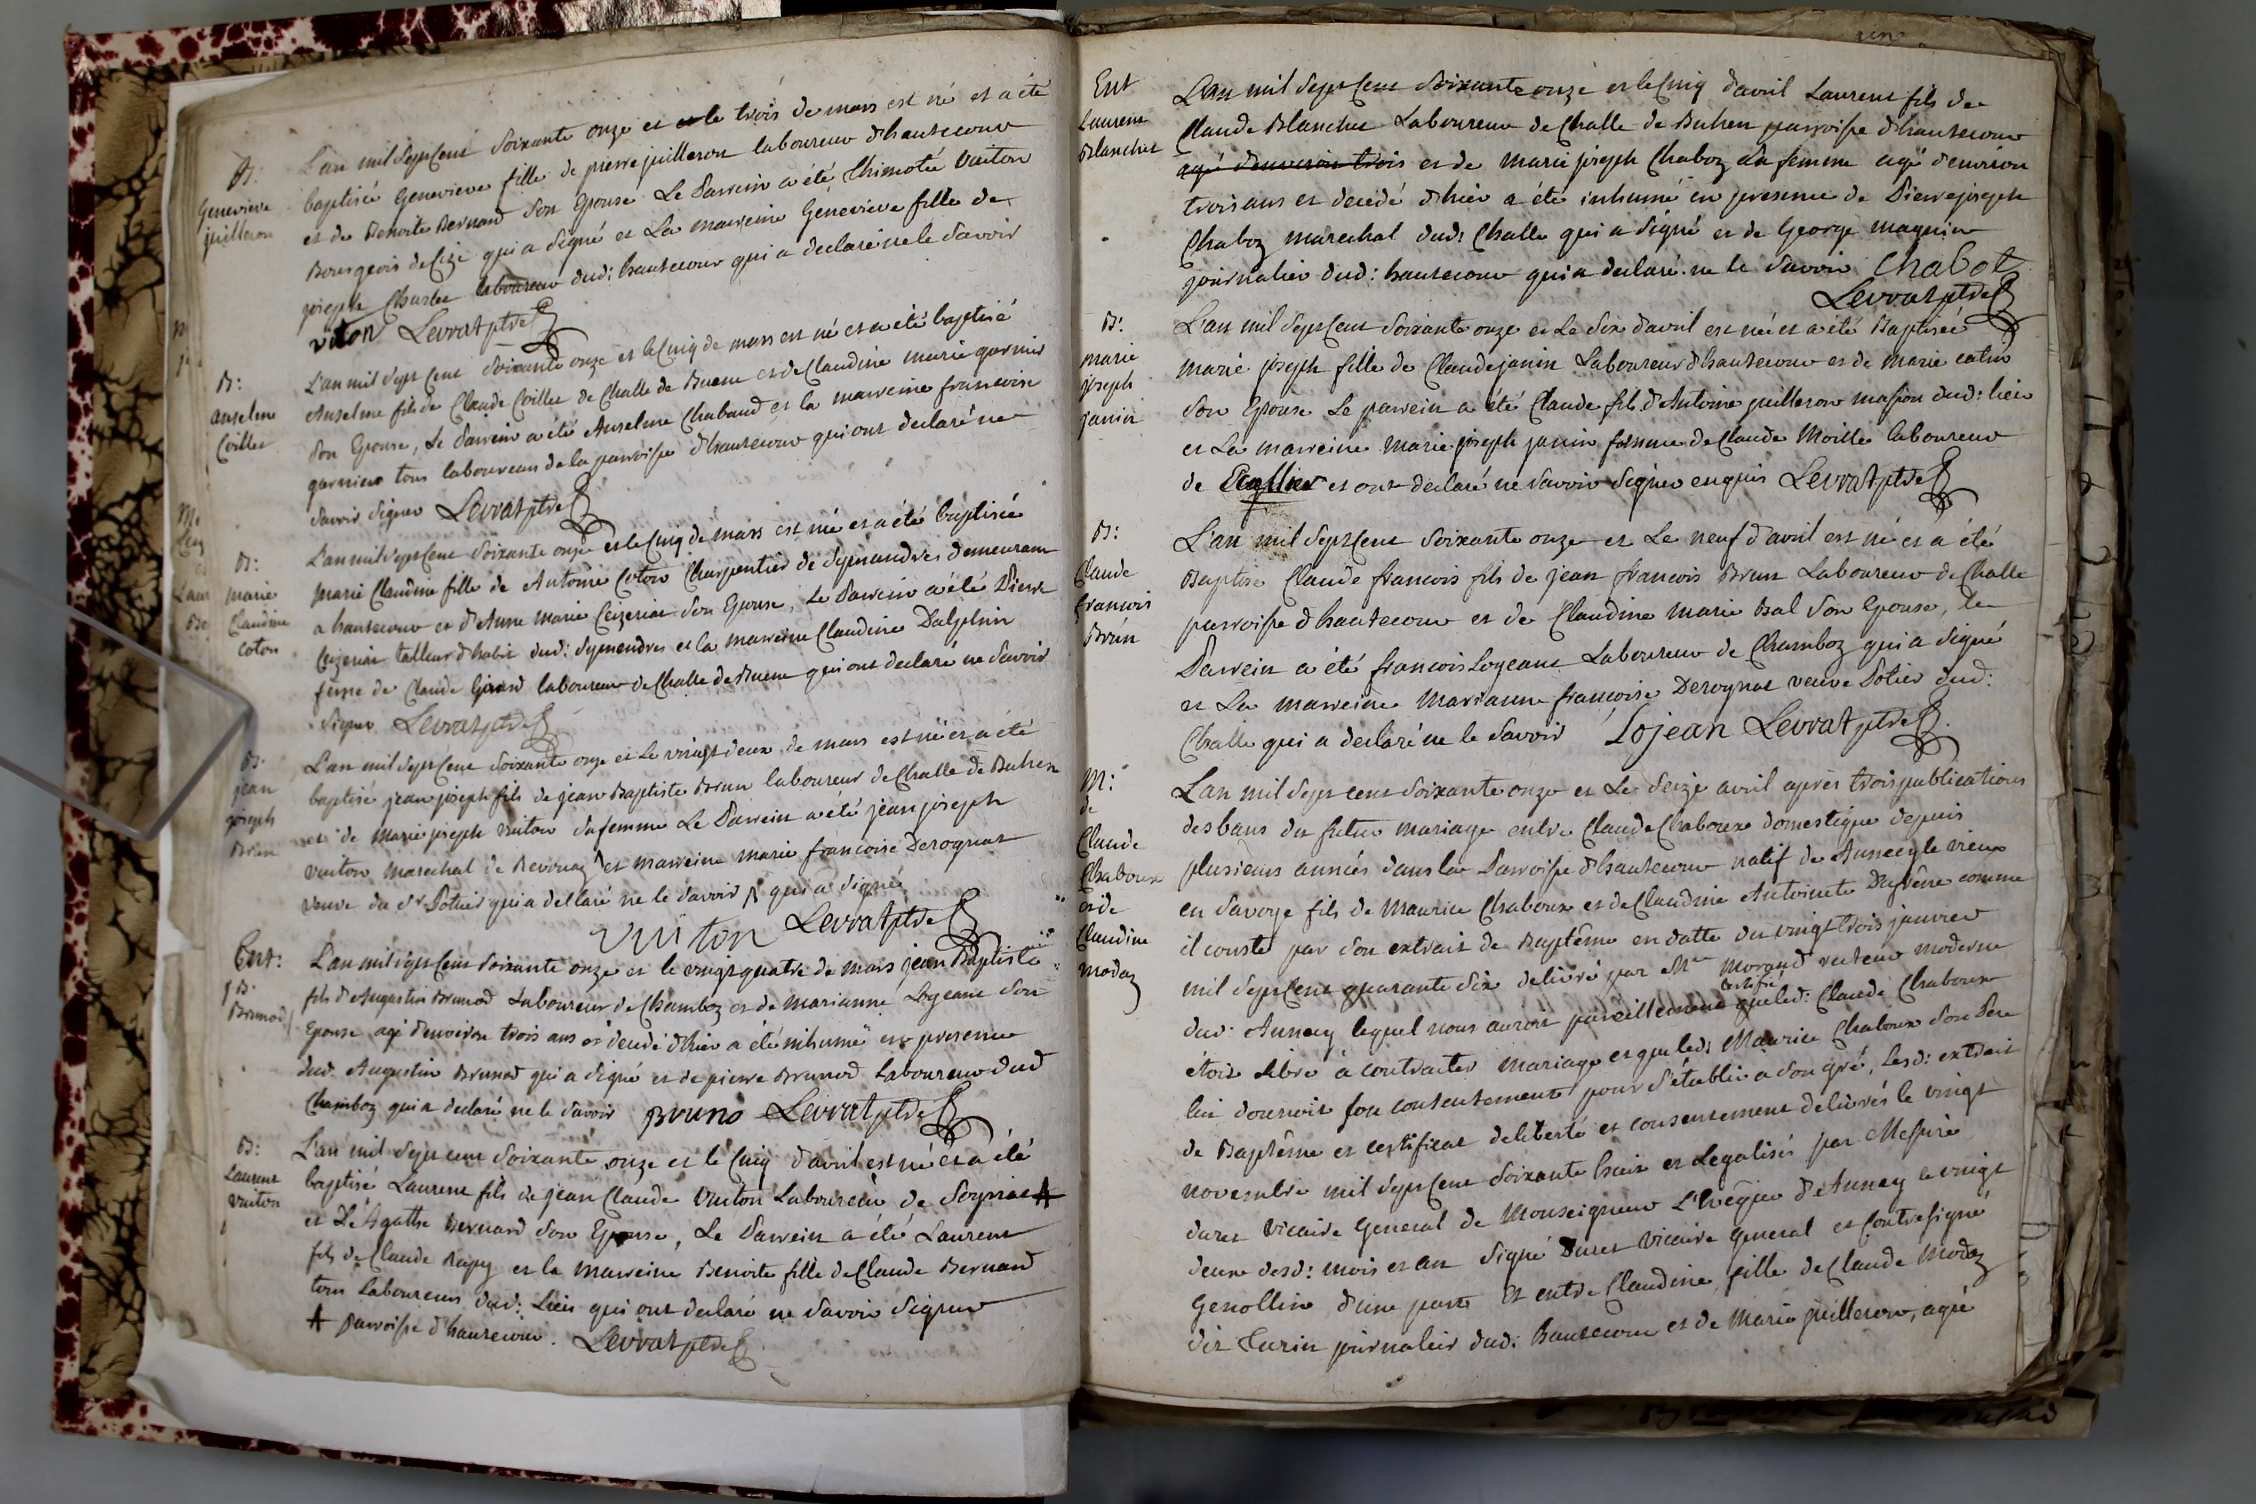 B:
Genevieve
juilleron
L'an mil sept cent soixante onze et le trois de mars est né et a été
baptisée Genevieve fille de pierre juilleron laboureur d'hautecour
et de Benoite Bernard son Epouse Le Parrein a été Thimoté Vuiton
Bourgeois de Cize qui a signé et La marreine Genevieve fille de
joseph Charlee laboureur dud: hautecour qui a declaré ne le savoir
viton Levrat ptre
B:
anselme
Coillet
L'an mil sept cent soixante onze et le cinq de mars est né et a été baptisé
Anselme fils de Claude Coillet de Challe de Buene et de Claudine marie garnier
son Epouse, Le Parrein a été Anselme Chabaud et la marreine francoise
garnier tous laboureurs de la parroisse d'hautecour qui ont declaré ne
savoir signer Levrat ptre
B:
marie
Claudine
coton
L'an mil sept cent soixante onze et le cinq de mars est né et a été baptisée
marie Claudine fille de Antoine Coton Charpentier de Symandres demeurant
a hautecour et d'Anne marie Ceizeriat son Epouse, Le Parrein a été Pierre
Ceizeriat tailleur d'habit dud: Symendres et la marreine Claudine Dalphin
feme de Claude Girard laboureur de Challe de Buene qui ont declaré ne savoir
signer Levrat ptre
B:
jean
joseph
Brun
L'an mil sept cent soixante onze et le vingt deux de mars est né et a été
baptisé jean joseph fils de jean Baptiste Brun laboureur de Challe de Buhen
et de Marie joseph Vuiton sa femme Le Parrein a été jean joseph
Vuiton marechal de Revonaz ^ et marreine marie francoise Derognat
veuve du Sr Potier qui a declaré ne le savoir ^ qui a signé
Vuiton Levrat ptre
Ent:
j B.
Brunod
L'an mil sept cent soixante onze et le vingt quatre de mars jean Baptiste
fils d'Augustin Brunod Laboureur de Chamboz et de Marianne Logeant son
Epouse agé d'environ trois ans et decedé d'hier a été inhumé en presence
dud. Augustin Brunod qui a signé et de pierre Brunod Laboureur dud
Chamboz qui a declaré ne le savoir Bruno Levrat ptre
B:
Laurent
vuiton
L'an mil sept cent soixante onze et le cinq d'avril est né et a été
baptisé Laurent fils de jean Claude Vuiton Laboureur de Soyriat A
et D'Agathe Bernard son Epouse, Le Parrein a été Laurent
fils de Claude Rapy et la marreine Benoite fille de Claude Bernard
tous Laboureurs dud: Lieu qui ont declaré ne savoir signer
A parroisse d'hautecour. Levrat ptre
Ent
Laurent
Blanchet
L'an mil sept cent soixante onze et le cinq d'avril Laurent fils de
Claude Blanchet Laboureur de Challe de Buhen parroisse d'hautecour
agé d'environ trois et de marie joseph Chaboz sa femme agé d'environ
trois ans et decedé d'hier a été inhumé en presence de Pierre joseph
Chaboz marechal dud: Challe qui a signé et de George maguin
journalier dud: hautecour qui a declaré ne le savoir Chabot
Levrat ptre
B:
marie
joseph
janin
L'an mil sept cent soixante onze et Le six d'avril est né et a été Baptisée
marie joseph fille de Claude janin Laboureur d'hautecour et de Marie catin
son Epouse Le parrein a été Claude fils d'Antoine juilleron masson dud: lieu
et La marreine marie joseph janin femme de Claude Moille laboureur
de et ont declaré ne savoir signer enquis Levrat ptre
B:
Claude
francois
Brun
L'an mil sept cent soixante onze et Le neuf d'avril est né et a été
Baptisé Claude francois fils de jean francois Brun Laboureur de Challe
parroisse d'hautecour et de Claudine marie Bal son Epouse, Le
Parrein a été francois Logeant Laboureur de Chamboz qui a signé
et La marreine Marianne francoise Derognat veuve Potier dud:
Challe qui a declaré ne le savoir Lojean Levrat ptre
M:
de
Claude
Chaboux
et de
Claudine
modaz
L'an mil sept cent soixante onze et Le seize avril après trois publications
des bans du futur mariage entre Claude Chaboux domestique depuis
plusieurs années dans la Parroisse d'hautecour natif de Annecy le vieux
en Savoye fils de Maurice Chaboux et de Claudine Antoinete comme
il conste par son extrait de Baptême en datte du vingt trois janvier
mil sept cent quarante six delivré par Mre Morand recteur moderne
dud: Annecy lequel nous auroit pareillement certifié que led: Claude Chaboux
étoit libre à contracter mariage et que led: Maurice Chaboux son Pere
lui donnoit son consentement pour s'établir a son gré, Lesd: extrait
de Baptême et certificat de liberté et consentement delivrés le vingt
novembre mil sept cent soixante huit et Legalisés par Messire
Duret Vicaire General de Monseigneur L'Evêque d'Annecy le vingt
deux desd: mois et an signé Duret Vicaire General et Contresigné
Genollin d'une part Et entre Claudine fille de Claude Modaz
dit Turin journalier dud: hautecour et de Marie juilleron, agé